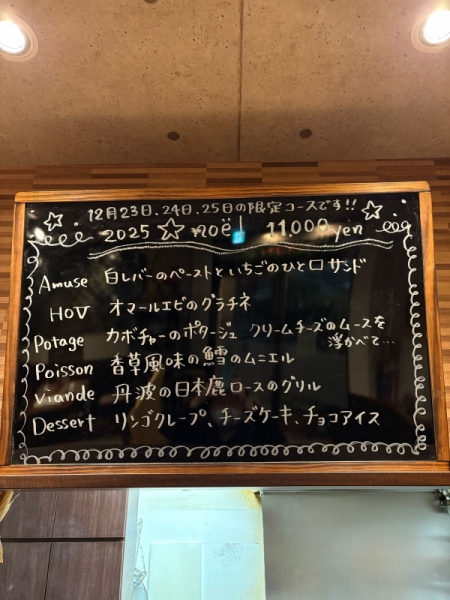 12月23日、24日、25日の限定コースです!!
2025 ☆ noël 11,000yen
Amuse 白レバーのペーストといちごのひと口サンド
HOV オマールエビのグラチネ
Potage カボチャーのポタージュ クリームチーズのムースを
浮かべて…
Poisson 香草風味の鱈のムニエル
Viande 丹波の日本鹿ロースのグリル
Dessert リンゴクレープ、チーズケーキ、チョコアイス